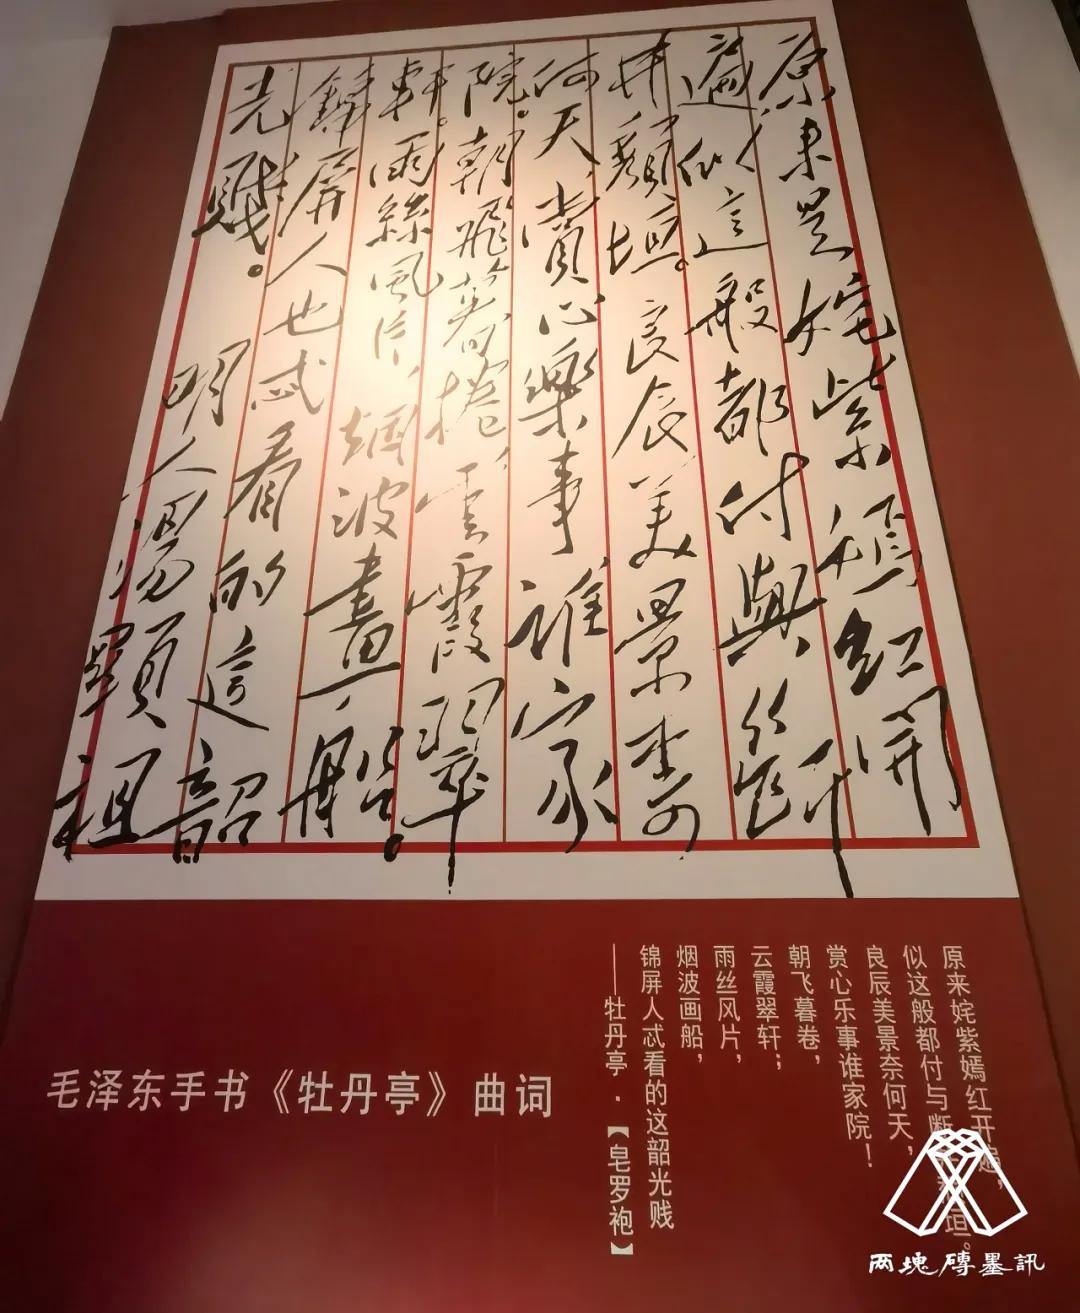 原来是姹紫嫣红開
遍,似這般都付與斷
井頹垣。良辰美景奈
何天,賞心樂事誰家
院。朝飛暮捲,雲霞翠
軒。雨絲風片,烟波畫船。
錦屏人也忒看的這韶
光賤。
明人湯顯祖
原来姹紫嫣红开遍,
似这般都付与断垣。
良辰美景奈何天,
赏心乐事谁家院!
朝飞暮卷,
云霞翠轩;
雨丝风片,
烟波画船,
锦屏人忒看的这韶光贱
——牡丹亭·【皂罗袍】
毛泽东手书《牡丹亭》曲词
两塊磚墨訊